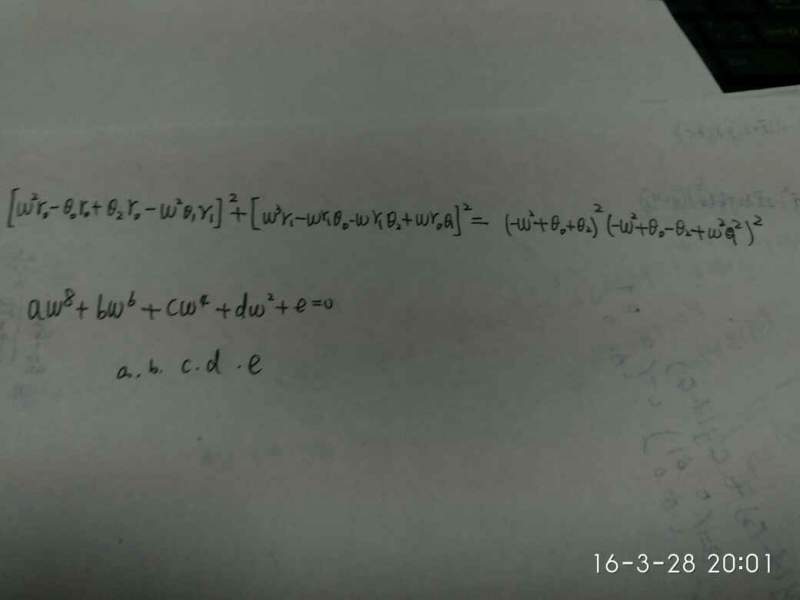 [ω²r₀-θ₀r₀+θ₂r₀-ω²θ₁r₁]²+[ω³r₁-ωr₁θ₀-ωr₁θ₂+ωr₀θ₁]²= (-ω²+θ₀+θ₂)²(-ω²+θ₀-θ₂+ω²θ₁²)²
aω⁸+bω⁶+cω⁴+dω²+e=0
a. b. c. d. e
16-3-28 20:01